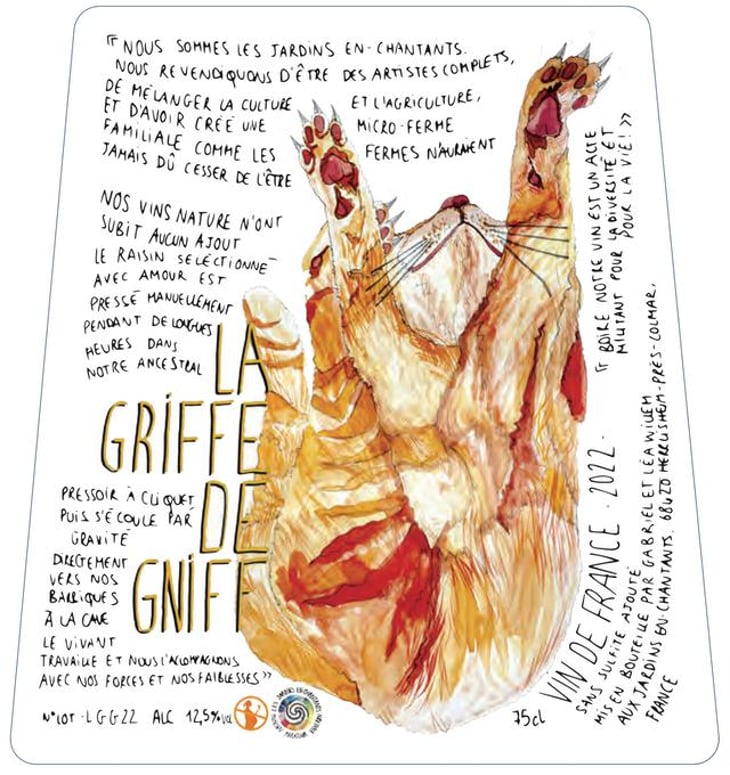 « NOUS SOMMES LES JARDINS EN-CHANTANTS.
NOUS REVENDIQUONS D'ÊTRE DES ARTISTES COMPLETS,
DE MÉLANGER LA CULTURE ET L'AGRICULTURE,
ET D'AVOIR CRÉÉ UNE MICRO-FERME
FAMILIALE COMME LES FERMES N'AURAIENT
JAMAIS DÛ CESSER DE L'ÊTRE
NOS VINS NATURE N'ONT
SUBIT AUCUN AJOUT
LE RAISIN SELÉCTIONNÉ
AVEC AMOUR EST
PRESSÉ MANUELLEMENT
PENDANT DE LONGUES
HEURES DANS
NOTRE ANCESTRAL
PRESSOIR À CLIQUET
PUIS S'ÉCOULE PAR
GRAVITÉ
DIRECTEMENT
VERS NOS
BARRIQUES
À LA CAVE
LE VIVANT
TRAVAILLE ET NOUS L'ACCOMPAGNONS
AVEC NOS FORCES ET NOS FAIBLESSES »
LA
GRIFFE
DE
GNIFF
N° LOT - LGG22 ALC 12,5% VOL
75cl
« BOIRE NOTRE VIN EST UN ACTE
MILITANT POUR LA DIVERSITÉ ET
POUR LA VIE! »
VIN DE FRANCE - 2022 -
SANS SULFITE AJOUTÉ
MIS EN BOUTEILLE PAR GABRIEL ET LÉA WILLEM
AUX JARDINS EN-CHANTANTS. 68420 HERRLISHEIM-PRÈS-COLMAR,
FRANCE